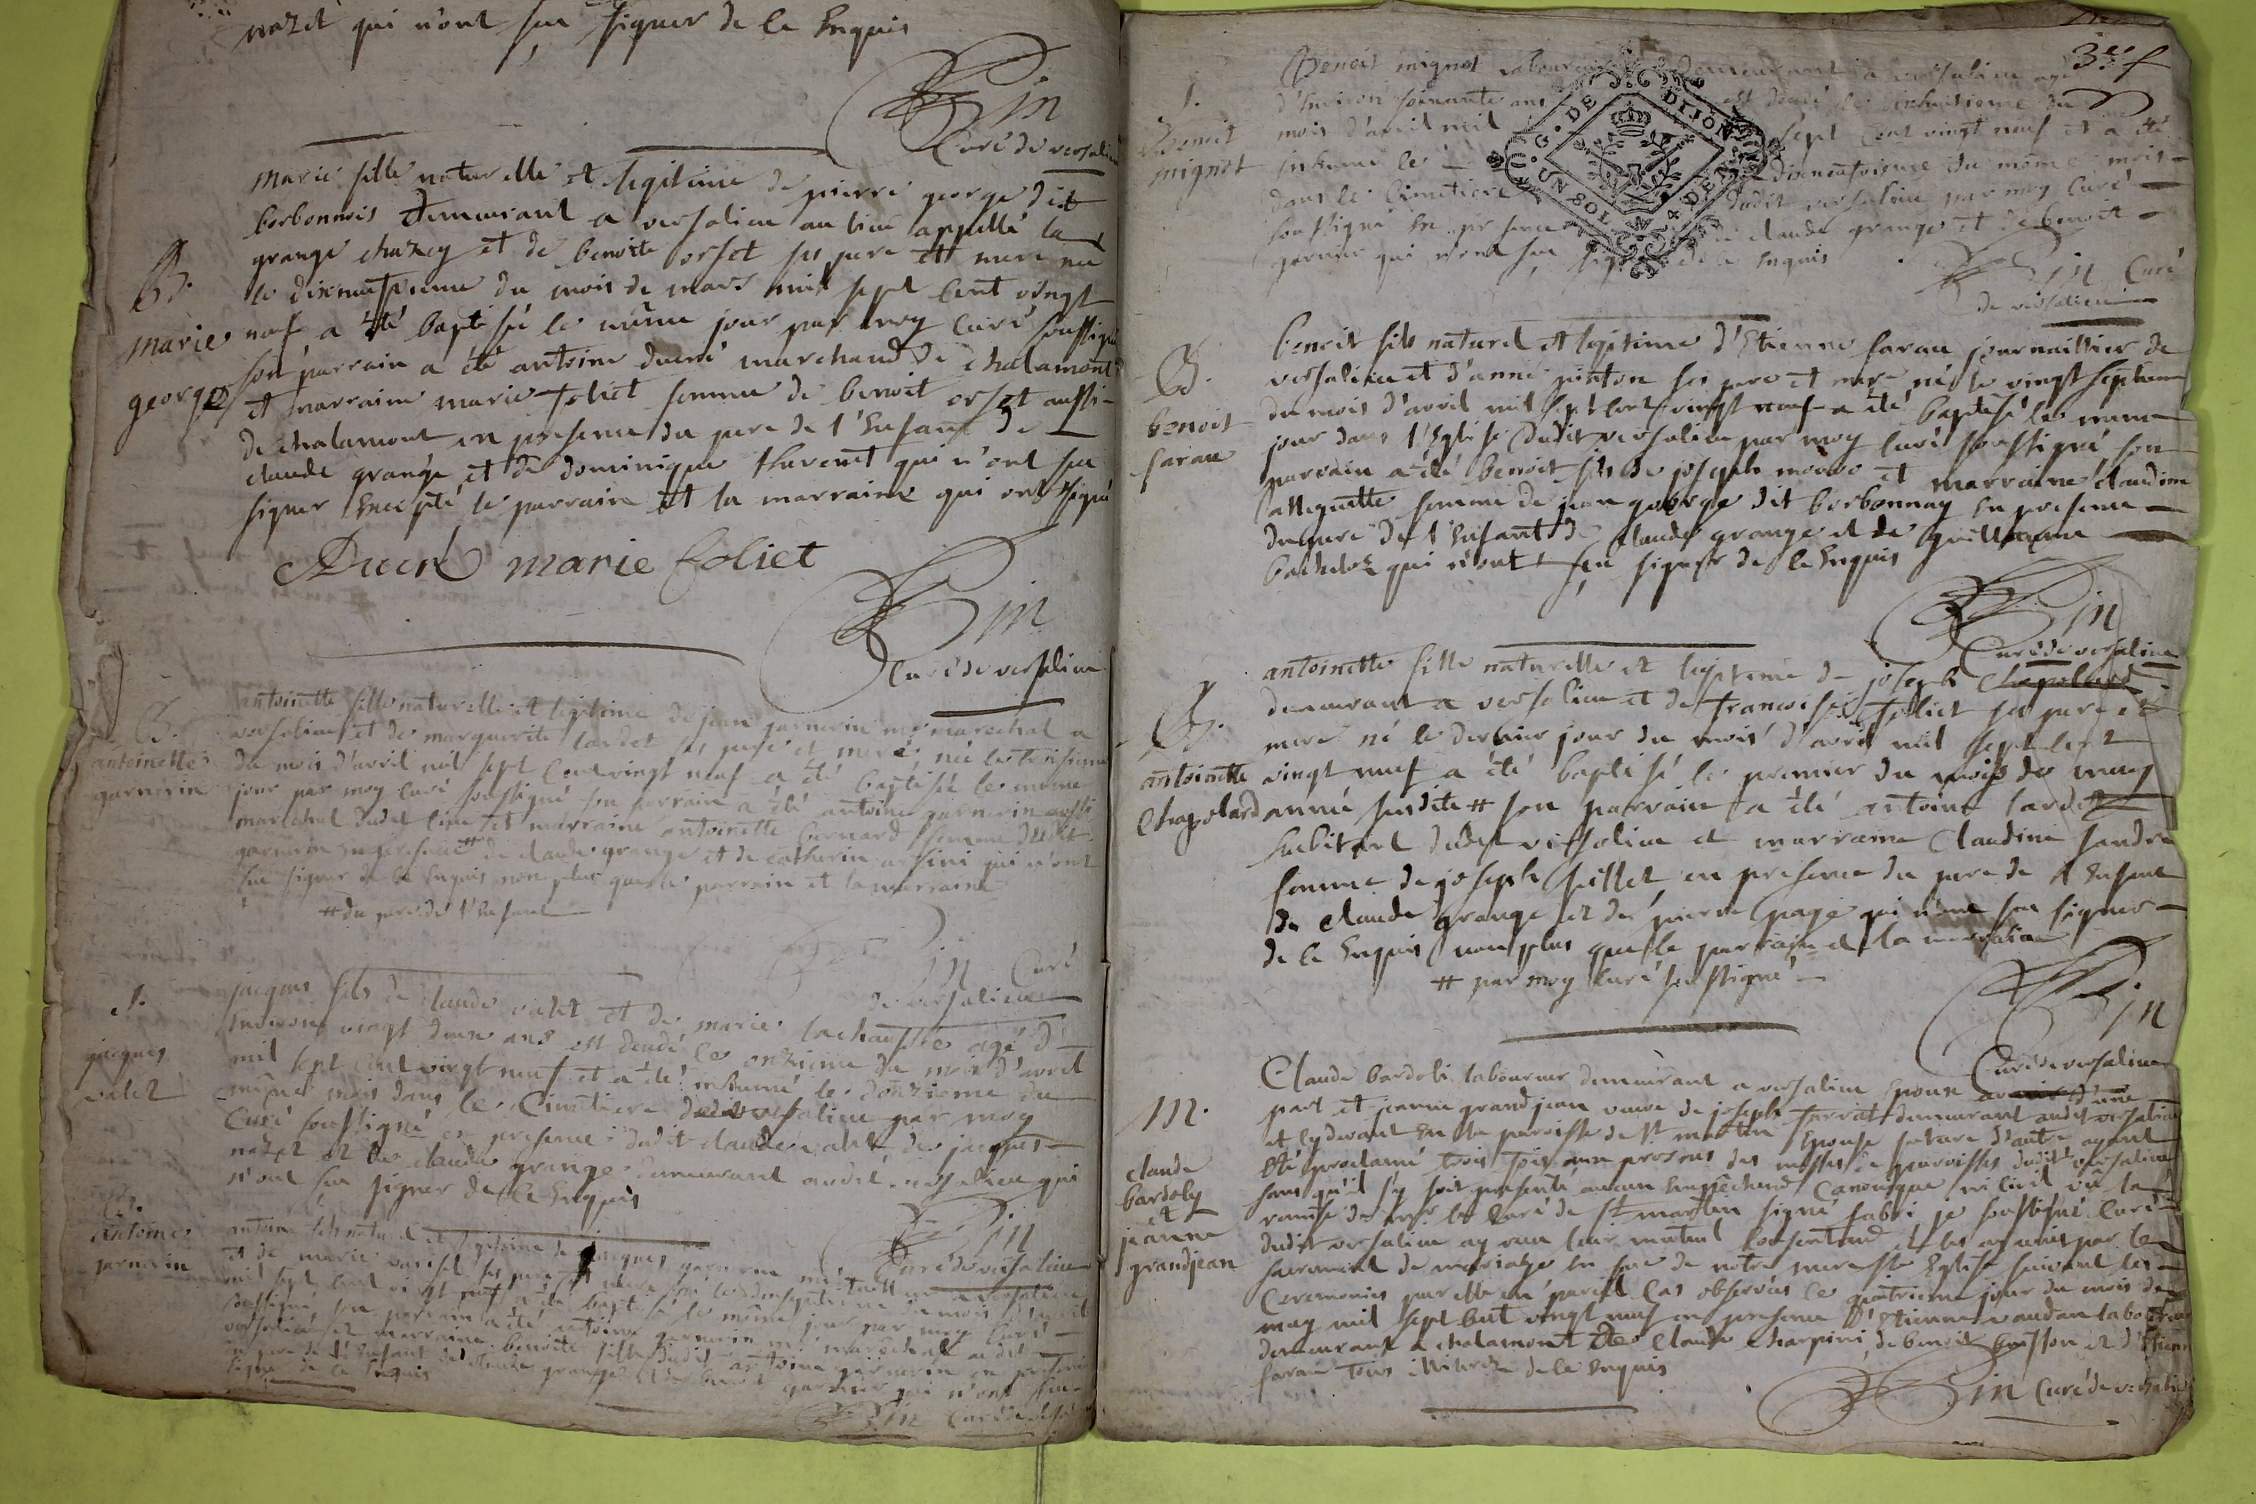 nazet qui n'ont sçu signer de ce Enquis
Curé de versalieu
marie fille naturelle et legitime de pierre george dit
borbonnois demeurant a versalieu au lieu appellé la
grange chazey et de benoite orset ses pere et mere née
le dixneufvieme du mois de mars mil sept cent vingt
neuf a été baptisée le même jour par moy Curé soussigné
son parrain a été antoine ducré marchand de chalamont
et marraine marie foliet femme de benoit orset aussi
de chalamont en presence du pere de l'Enfant de
claude grange et de dominique thevenet qui n'ont sçu
signer Excepté le parrain et la marraine qui ont signé
B.
marie
george
Ducré marie foliet
Curé de versalieu
antoinette fille naturelle et legitime de jean garnerin me marechal a
versalieu et de marguerite lardet ses pere et mere, née le troisieme
du mois d'avril mil sept Cent vingt neuf a été baptisée le meme
jour par moy Curé soussigné son parrain a été antoine garnerin aussi
marechal dudit lieu et marraine antoinette bernard femme dudit
garnerin en presence # de claude grange et de catherin arpini qui n'ont
sçu signer de ce Enquis non plus que le parrain et la marraine
# du pere de l'Enfant
B.
antoinette
garnerin
Curé
de versalieu
jacques fils de Claude valet et de marie lachausse agé d'
Environ vingt deux ans est decedé le onzieme du mois d'avril
mil sept cent vingt neuf et a été inhumé le douzieme du
même mois dans le Cimetiere dudit versalieu par moy
Curé soussigné en presence dudit claude valet de jacques
nazet et de claude grange demeurant audit versalieu qui
n'ont sçu signer de ce Enquis
S.
jacques
valet
Curé de versalieu
antoine fils naturel et legitime de jacques garnerin
et de marie
mil sept cent vingt neuf a été baptisé le même jour par moy Curé
soussigné, son parrain a été antoine garnerin me marechal audit
versalieu et marraine benoite fille dudit antoine garnerin en presence
du pere de l'Enfant de claude grange et de benoit garnier qui n'ont sçu
signer de ce Enquis
B.
Antoine
garnerin
3e f
Benoit mignot laboureur demeurant a versalieu agé
d'Environ soixante ans est decedé le dixhuitieme du
mois d'avril mil sept Cent vingt neuf et a été
inhumé le dixneufvieme du même mois
dans le Cimetiere dudit versalieu par moy Curé
soussigné En presence de claude grange et de benoit
garnier qui n'ont sçu signer de ce Enquis
S.
Benoit
mignot
G. DE DIJON
UN SOL 4 DEN
Curé
de versalieu
Benoit fils naturel et legitime d'Etienne farau journaillier de
versalieu et d'anne pinton ses pere et mere né le vingt septieme
du mois d'avril mil sept cent vingt neuf a été baptisé le meme
jour dans l'Eglise dudit versalieu par moy Curé soussigné, son
parrain a été benoit fils de joseph et marraine claudine
femme de jean george dit borbonnay En presence
du pere de l'Enfant de Claude grange et de guillaume
qui n'ont sçu signer de ce Enquis
B.
benoit
farau
Curé de versalieu
antoinette fille naturelle et legitime de joseph Chapolard
demeurant a versalieu et de francoise foliet ses pere et
mere né le dernier jour du mois d'avril mil sept cent
vingt neuf a été baptisé le premier du mois de may
année susdite # son parrain a été antoine lardet
habitant dudit versalieu et marraine Claudine
femme de joseph en presence du pere de l'Enfant
de claude grange et de pierre page qui n'ont sçu signer
de ce Enquis non plus que le parrain et la marraine
# par moy Curé soussigné
B.
antoinette
Chapolard
Curé de versalieu
Claude bardoli laboureur demeurant a versalieu Epoux d'une
part et jeanne grandjean veuve de joseph ferrat demeurant audit versalieu
et cydevant En la paroisse de st martin Epouse future d'autre ayant
été proclamé trois fois aux prosnes des messes de paroisses dudit versalieu
sans qu'il s'y soit presenté aucun Empechement Canonique ni civil vu la
remise de mr le Curé de st martin signé fabri je soussigné Curé
dudit versalieu ay reçu leur mutuel Consentement et les ay unis par le
sacrement de mariage En face de notre mere ste Eglise suivant les
Ceremonies par elle en pareil Cas observées le quatrieme jour du mois de
may mil sept Cent vingt neuf en presence d'Etienne vaudan laboureur
demeurant a chalamont de Claude Charpini, de benoit buisson et d'Etienne
farau tous illiterez de ce Enquis
m.
claude
bardoly
et
jeanne
grandjean
Curé de versalieu